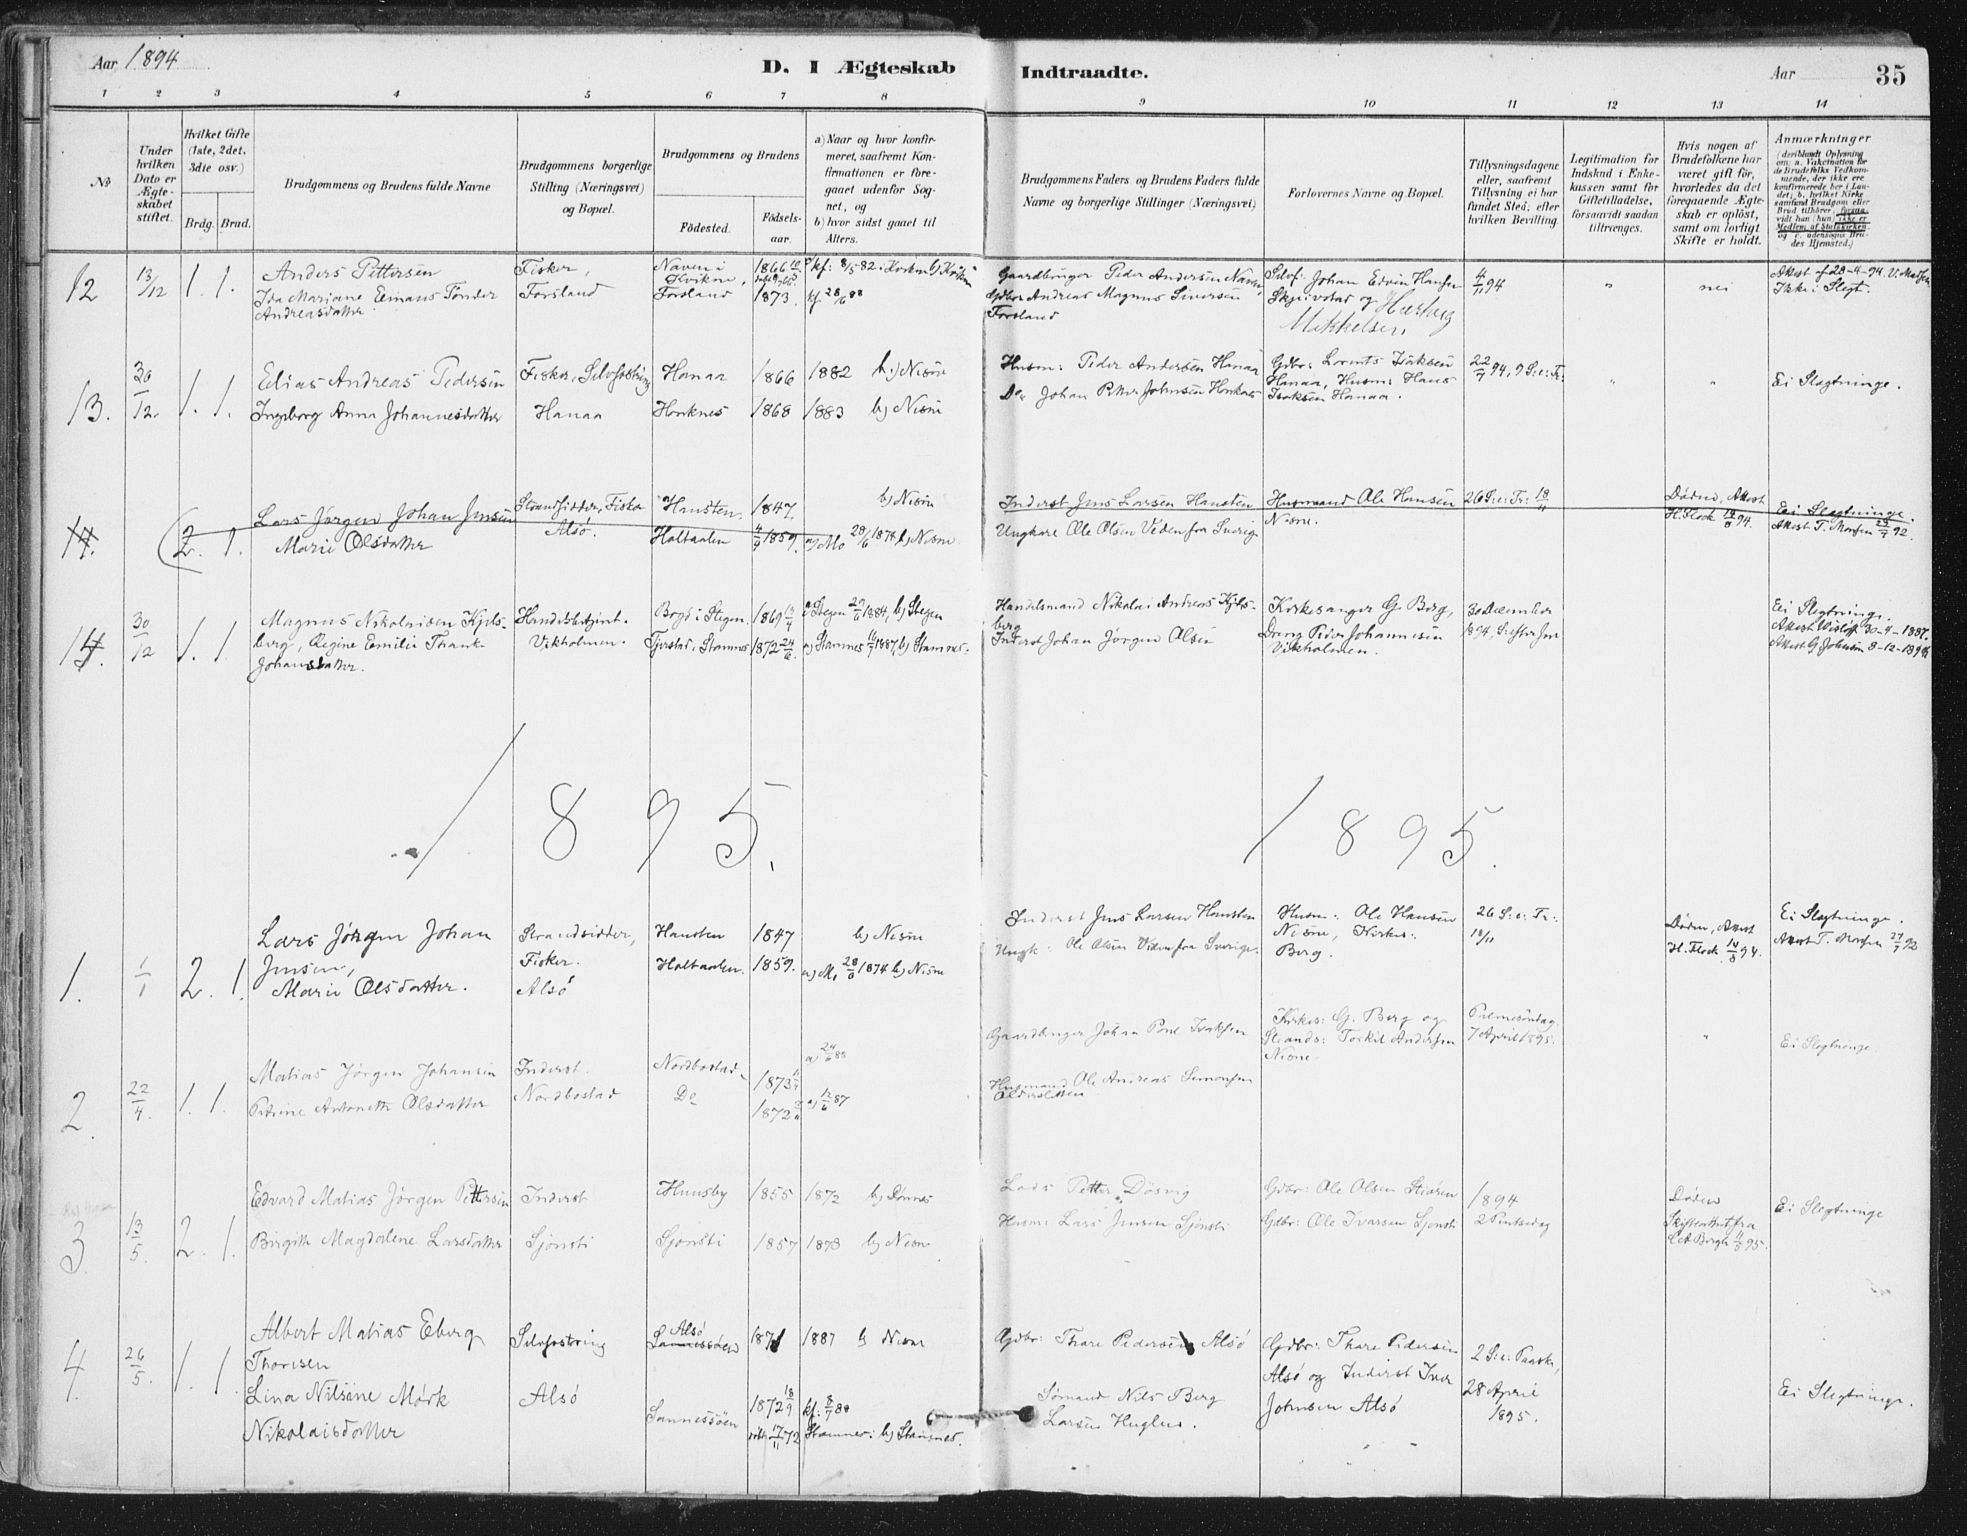 Aar 1894
D. I Ægteskab
Indtraadte.
Aar
35
1 2 3 4 5 6 7 8 9 10 11 12 13 14
No
Under hvilken Dato er Ægteskabet stiftet.
Hvilket Gifte (1ste, 2det, 3die osv.)
Brdg. Brud.
Brudgommens og Brudens fulde Navne
Brudgommens borgerlige Stilling (Næringsvei) og Bopæl.
Brudgommens og Brudens
Födested.
Födselsaar.
a) Naar og hvor konfirmeret, saafremt Konfirmationen er foregaaet udenfor Sognet, og
b) hvor sidst gaaet til Alters.
Brudgommens Faders og Brudens Faders fulde Navne og borgerlige Stillinger (Næringsvei)
Forlovernes Navne og Bopæl.
Tillysningsdagene eller, saafremt Tillysning ei har fundet Sted, efter hvilken Bevilling
Legitimation for Indskud i Enkekassen samt for Giftetilladelse, forsaavidt saadan tiltrænges.
Hvis nogen af Brudefolkene har været gift för, hvorledes da det foregaaende Ægteskab er oplöst, samt om lovligt Skifte er holdt.
Anmærkninger
(deriblandt Oplysning om: a. Vakcination for de Brudefolks Vedkommende, der ikke ere konfirmerede her i Landet; b. hvilket Kirkesamfund Brudgom eller Brud tilhörer, forsaavidt han (hun) ikke er Medlem af Statskirken og c. udensogns Brudes Hjemsted.)
12 13/12 1. 1.
Anders Pettersen
Ida Mariane Emaus Tönder
Andreasdatter
Fisker,
Forsland
Forsland
1866
1873.
kf. 28/6 88
Gaardbruger Peder Andersen
Gdbr: Andreas Magnus Siversen
Forsland
Selvf. Johan Edvin Hansen
Skjeivstad og Hartvig
Mikkelsen
4/11 94
" nei
Ikke i Slegt.
13. 30/12. 1. 1.
Elias Andreas Pedersen
Ingeborg Anna Johannesdatter
Fisker, Selvfostring
Hanaa
Hanaa
1866
1868
1882 b.) Nesne
1883 b) Nesne
Husm: Peder Andersen Hanaa
Do Johan Petter Johnsen
Gdbr: Lorents Isaksen
Hanaa, Husm: Hans
Isaksen Hanaa.
22/7 94, 9 S: e: Tr:
" "
Ei Slegtninge.
14. (2. 1.
Lars Jørgen Johan Jensen
Marie Olsdatter
Strandsidder, Fisker
Alsö.
Hansten.
Holtaalen
1847.
4/9 1859.
b) Nesne
a) Mo 28/6 1874, b) Nesne
Inderst Jens Larsen Hansten
Ungkarl Ole Olsen Viden fra Sverige
Husmand Ole Hansen
Nesne.
26 S: e: Tr: 18/11
Döden, Attest
H. Flock 14/8 94.
Ei Slegtninge.
Attest T. 27/7 92.
14. 30/12 1. 1.
Magnus Nikolaisen Kjelsberg,
Regine Emilie Thank
Johansdatter.
Handelsbetjent.
Vikholmen.
Bogö i Stegen
1869
1872 24/6.
a) Stegen 29/6 1884, b) Stegen
a) Stamnes 1887, b) Stamnes.
Handelsmand Nikolai Andreas Kjelsberg
Inderst Johan Jörgen Olsen
Kirkesanger G. Berg,
Dreng Peder Johannesen
Vikholmen.
30 December
1894, S: efter Jul
Ei Slegtninge.
30-4-1887.
Attest G. Johnson 8-12-1894
1895.
1895.
1. 1/1 2. 1.
Lars Jørgen Johan
Jensen,
Marie Olsdatter.
Strandsidder,
Fisker.
Alsö
Hansten
Holtaalen.
1847
1859.
b) Nesne
a) Mo 28/6 1874 b) Nesne
Inderst Jens Larsen Hansten
Ungk: Ole Olsen Viden fra Sverige.
Husm: Ole Hansen
Nesne, Kirkes:
Berg.
26 S: e: Tr:
18/11
Döden, Attest
H. Flock 14/8 94.
Ei Slegtninge.
Attest T. 27/7 92
2. 22/4. 1. 1.
Matias Jørgen Johansen
Petrine Antonette Olsdatter
Inderst.
Nordbostad
Nordbostad
Do
1873
1872
a) 24/6 88
a) 12/6 87
Gaardbruger Johan Povl Isaksen
Husmand Ole Andreas Simonsen
Kirkes: G. Berg og
Strands: Torkil Andersen
Nesne.
Palmesöndag
7 April 1895.
"
Ei Slegtninge
3. 13/5. 2. 1.
Edvard Matias Jørgen Pettersen
Birgith Magdalene Larsdatter
Inderst
Sjonsti
Huusby
Sjonsti
1855
1857
1872 b) Dönnes
1873 b) Nesne
Lods Petter Dösvig
Husm: Lars Jensen Sjonsti
Gdbr: Ole Olsen
Gdbr: Ole Ivarsen Sjonsti
1894
2 Pintsedag
Döden
Skifteattest fra
95.
Ei Slegtninge
4. 26/5. 1. 1.
Albert Matias Eberg
Thoresen
Lina Nilsine Mørk
Nikolaisdatter
Selvfostring
Alsö
Alsö
Sannessöen
Sannessöen
1871
1872 18/9
döbt 17/11 72
1887 b) Nesne
kf: 8/7 88
Stamnes: b) Stamnes.
Gdbr: Thore Pedersen Alsö
Sömand Nils Berg
Larsen
Gdbr: Thore Pedersen
Alsö og Inderst Iver
Johnsen Alsö
2 S: e: Paaske,
28 April
1895.
Ei Slegtninge.